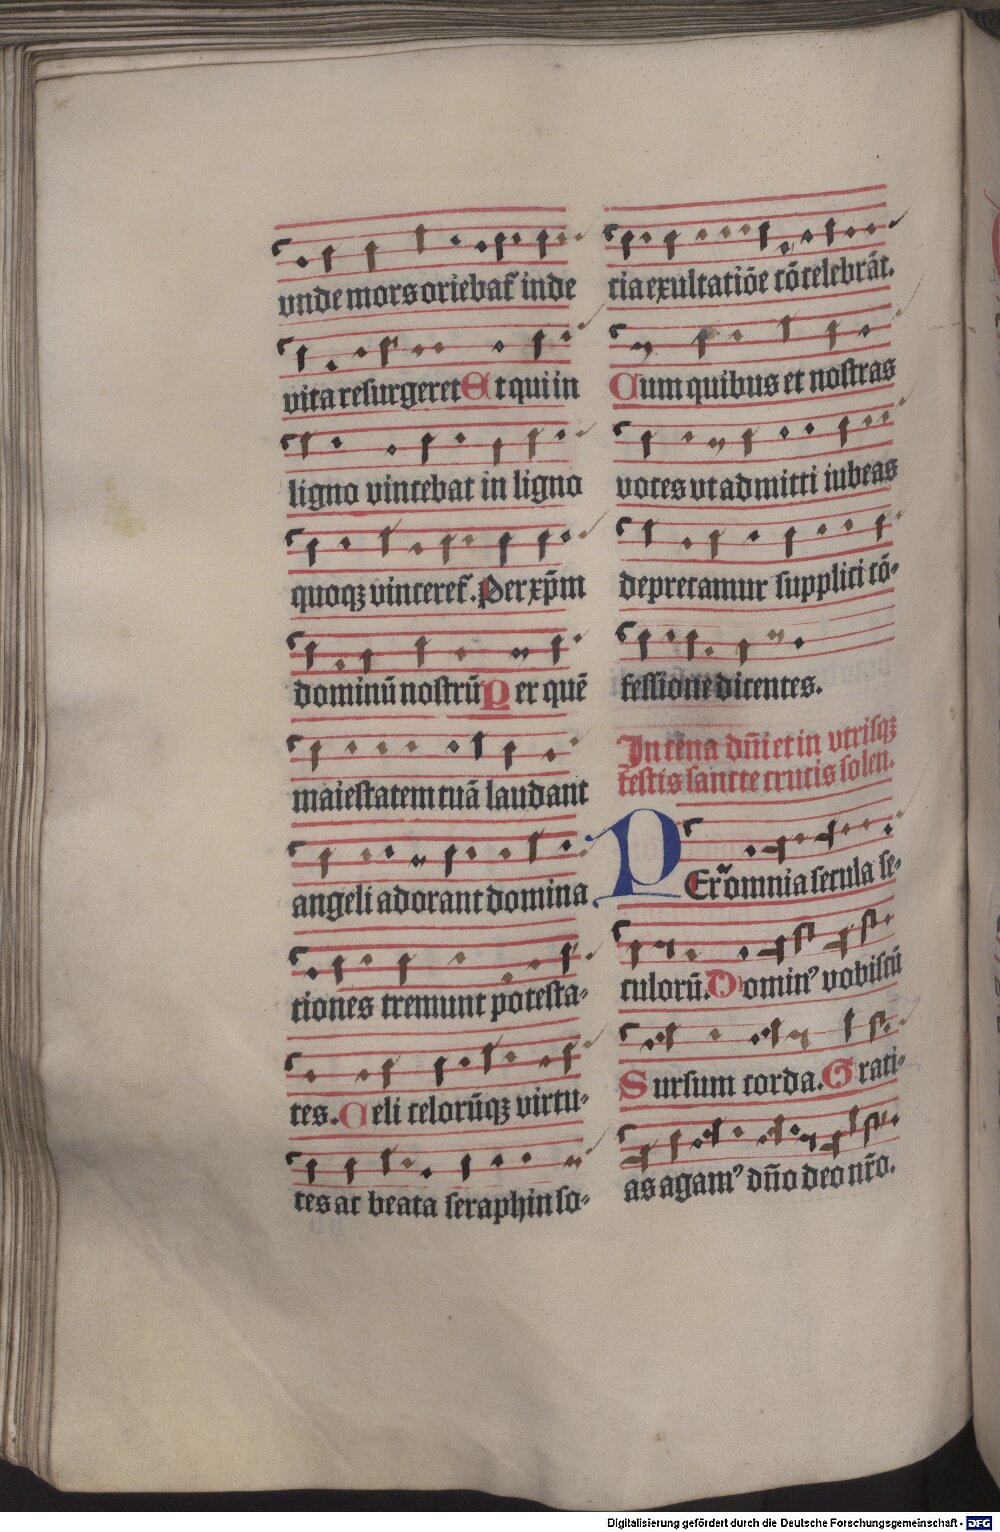 vnde mors oriebat̄ inde
vita resurgeret Et qui in
ligno vincebat in ligno
quoqꝫ vinceret̄. Per xp̄m
dominū nostrū Per quē
maiestatem tuā laudant
angeli adorant domina
tiones tremunt potesta⸗
tes. Celi celorūqꝫ virtu⸗
tes ac beata seraphin so⸗
cia exultatiōe cōcelebrāt.
Cum quibus et nostras
voces vt admitti iubeas
deprecamur supplici cō⸗
fessione dicentes.
In cena dn̄i et in vtrisqꝫ
festis sancte crucis solen.
PEr omnia secula se⸗
culorū. Dominꝰ vobiscū
Sursum corda. Grati⸗
as agamꝰ dn̄o deo nr̄o.
Digitalisierung gefördert durch die Deutsche Forschungsgemeinschaft - DFG